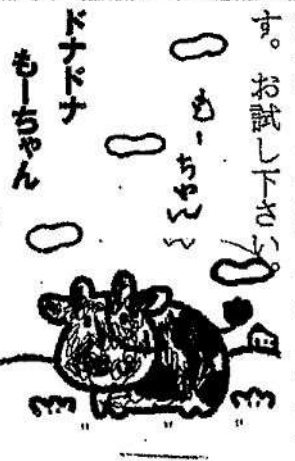 す。お試し下さい。
もーちゃん
ドナドナ
もーちゃん